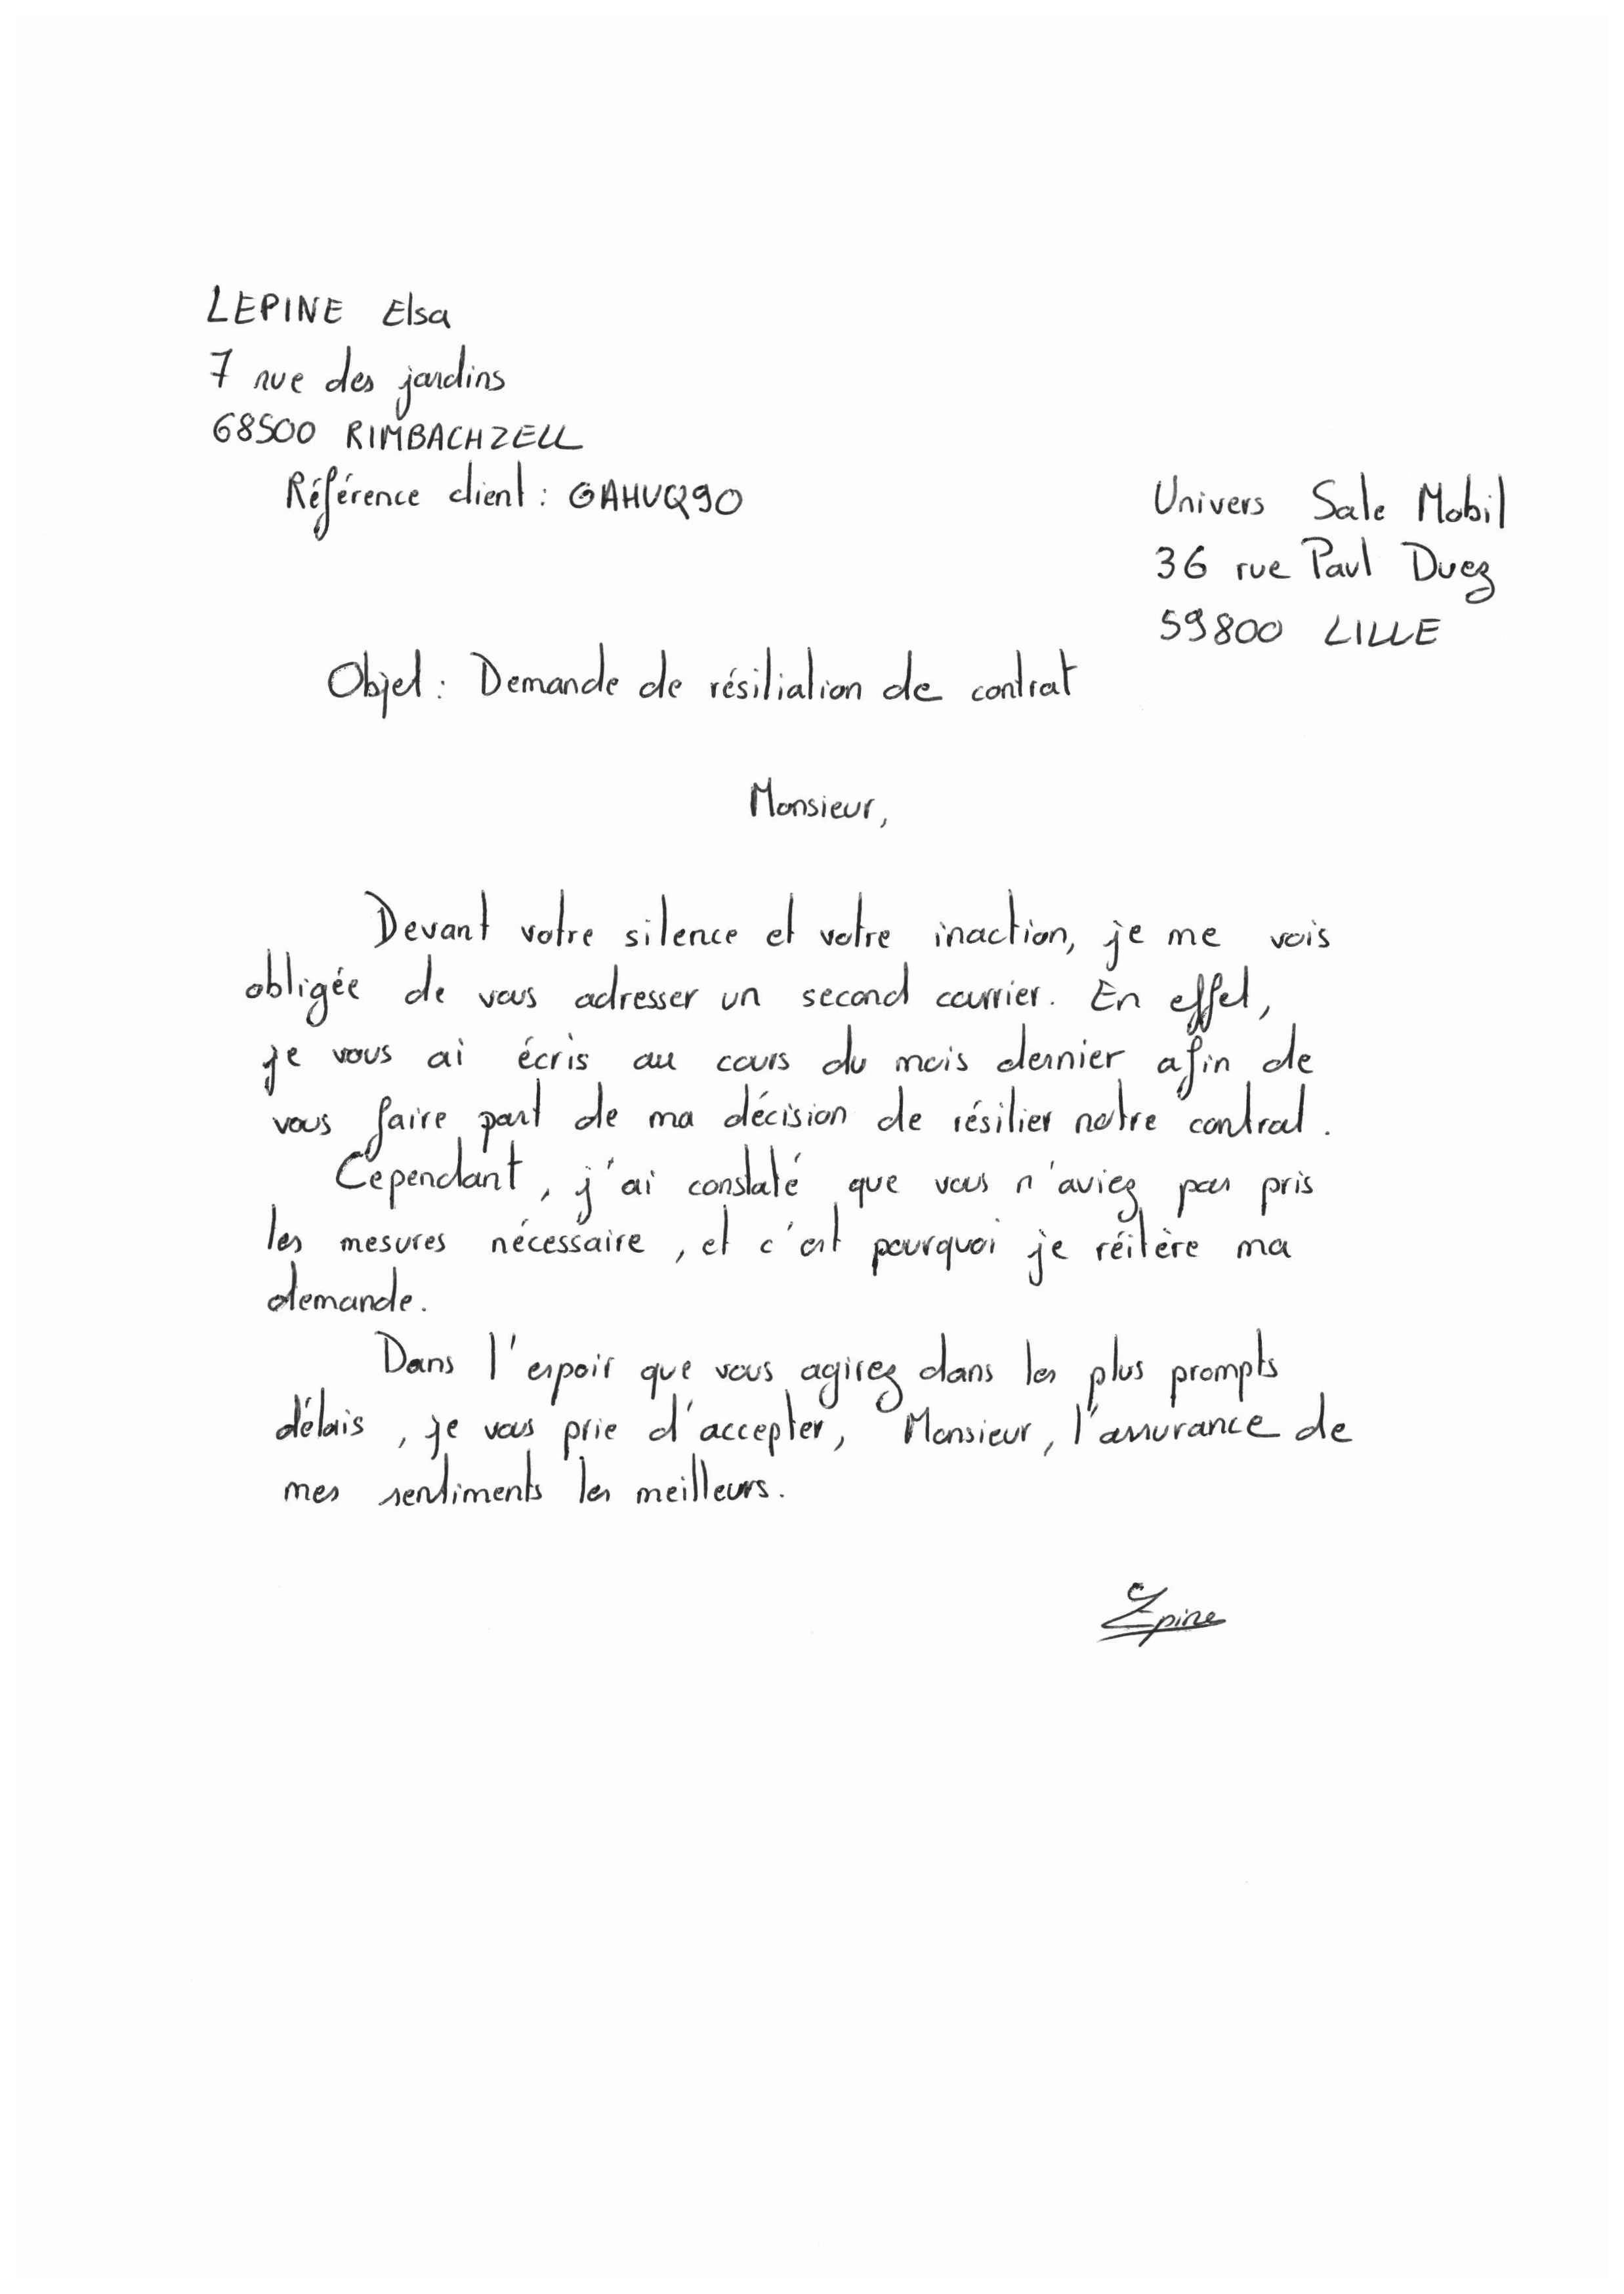 LEPINE Elsa
7 rue des jardins
68500 RIMBACHZELL
Référence client : GAHUQ90
Univers Sale Mobil
36 rue Paul Duez
59800 LILLE
Objet : Demande de résiliation de contrat
Monsieur,
Devant votre silence et votre inaction, je me vois
obligée de vous adresser un second courrier. En effet,
je vous ai écris au cours du mois dernier afin de
vous faire part de ma décision de résilier notre contrat.
Cependant, j'ai constaté que vous n'aviez pas pris
les mesures nécessaire, et c'est pourquoi je réitère ma
demande.
Dans l'espoir que vous agirez dans les plus prompts
délais, je vous prie d'accepter, Monsieur, l'assurance de
mes sentiments les meilleurs.